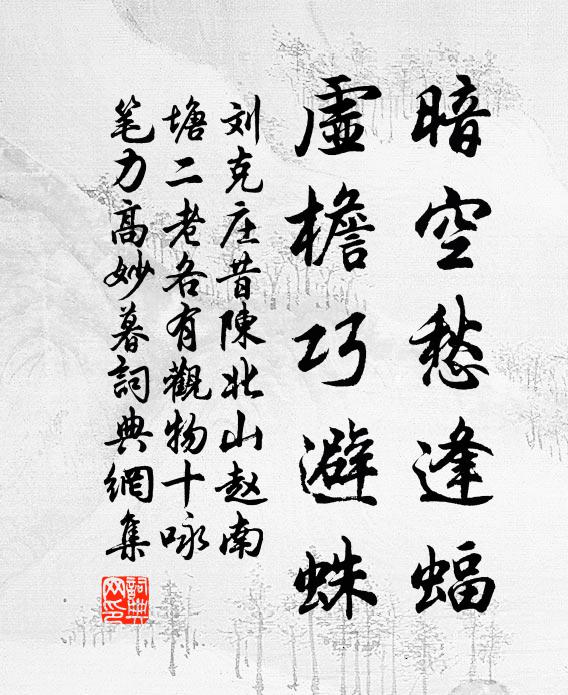 暗空愁逢蝠
虛檐巧避蛛
刘克庄昔陳北山赵南
塘二老各有觀物十咏
笔力高妙暮詞典網集
詞典网印